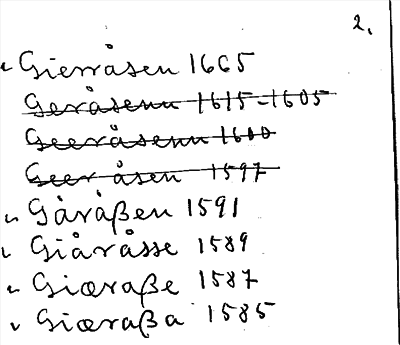 2.
Gierråsen 1665
Geråsenn 1615-1605
Geeråsenn 1600
Geer åsen 1597
Gåråßen 1591
Giåråsse 1589
Giæraße 1587
Giæraßa 1585